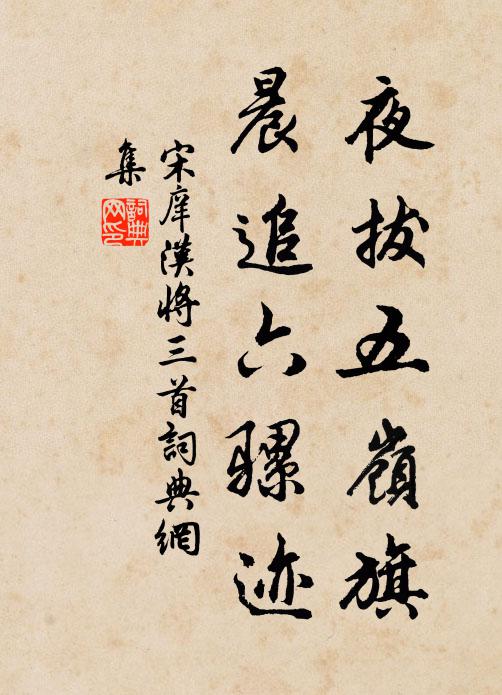 夜拔五嶺旗
晨追六騾迹
宋庠漢將三首詞典網
集
詞典
网印